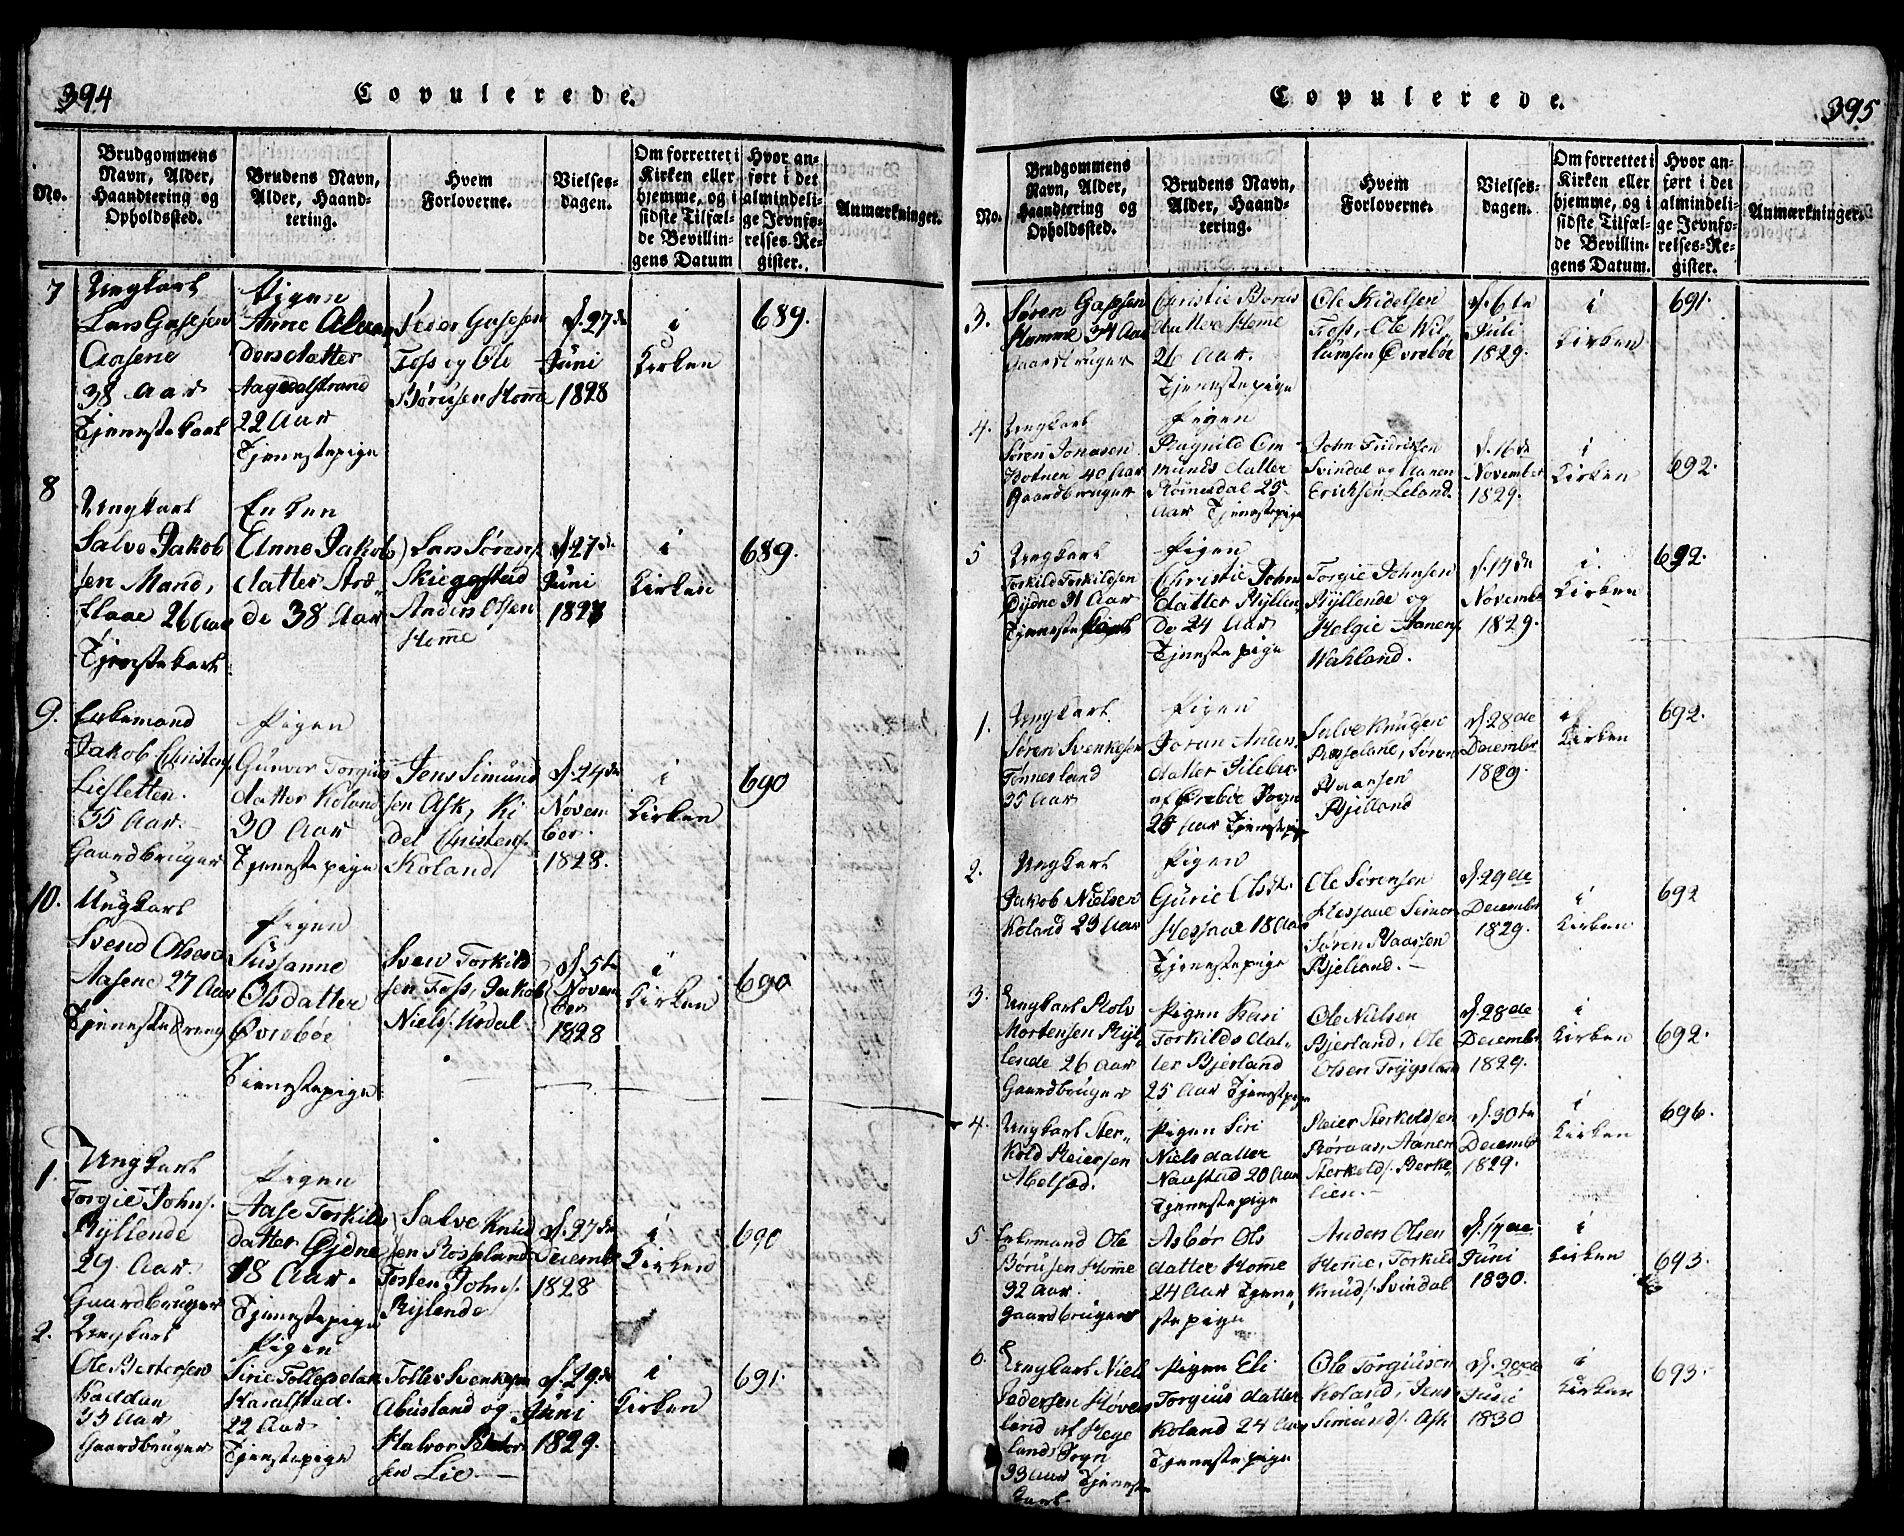 394
Copulerede.
No.
Brudgommens
Navn, Alder,
Haandtering og
Opholdssted.
Brudens Navn,
Alder, Haand-
tering.
Hvem
Forloverne.
Vielses-
dagen.
Om forrettet i
Kirken eller
hjemme, og i
sidste Tilfæl-
de Bevillin-
gens Datum
Hvor an-
ført i det
almindeli-
ge Jevnfø-
relses-Re-
gister.
Anmærkninger.
7
Ungkarl
Lars
Aasene
38 Aar
Tjenestekarl
Pigen
Anne
dersdatter
Aagedalstrand
22 Aar
Tjenestepige
Peder
Foss og Ole
Börusen Homme
d. 27de
Juni
1828
i
Kirken
689.
8
Ungkarl
Salve Jakob
sen Mand,
flaae 26 Aar
Tjenestekarl.
Enken
Anne Jakobs
datter
de 38 Aar
Lars Sörens.
Skieggstad
Anders Olsen
Homme
d. 27de
Juni
1828
i
Kirken
689.
9.
Enkemand
Jakob Christens.
Liesletten.
35 Aar.
Gaardbruger
Pigen
Gunvor Torgius
datter Koland
30 Aar
Tjenestepige
Jens Simund
sen Ask, Ki
del Christens.
Koland
d. 24de
Novem
ber.
1828.
i
Kirken
690
10.
Ungkarl
Svend Olsen
Aasene 27 Aar
Tjenestedreng
Pigen
Susanne
Olsdatter
Øvreböe
Tienestepige
Sven Torkild
sen Foss, Jakob
Niels. Usdal.
d. 5te
Novem
ber
1828
i
Kirken
690
1.
Ungkarl
Torgie Johns.
Ryllende
29 Aar
Gaardbruger
Pigen
Aase Torkilds
datter Øydne
18 Aar.
Tjenestepige
Salve Knud
sen Rosseland
Tosten Johns.
Rijlende
d. 27de
Decemb
1828
i
Kirken
690
2.
Ungkarl
Ole
Haddan
33 Aar
Gaardbruger
Pigen
Sirie Tollefsdatt
Haralstad.
22 Aar
Tjenestepige
Tolles Svenksen
Abusland og
Halvor
sen Lie.
d. 29de
Juni
1829.
i
Kirken
691.
Copulerede.
395
No.
Brudgommens
Navn, Alder,
Haandtering og
Opholdssted.
Brudens Navn,
Alder, Haand-
tering.
Hvem
Forloverne.
Vielses-
dagen.
Om forrettet i
Kirken eller
hjemme, og i
sidste Tilfæl-
de Bevillin-
gens Datum.
Hvor an-
ført i det
almindeli-
ge Jevnfø-
relses-Re-
gister.
Anmærkninger.
3.
Sören
Homme 34 Aar
Gaardbruger
Christie Börus
datter Home
26 Aar.
Tjenestepige
Ole Kidelsen
Foss, Ole Wil
lumsen Øvreböe
d. 6te
Juli
1829.
i
Kirken
691.
4.
Ungkarl
Sören Jonasen
Botnen 40 Aar
Gaardbruger
Pigen
Ragnild Om
munds datter
Römesdal 25
Aar Tjenestepige
John Fridriksen
Svindal og Aanen
Erichsen Leland.
d. 16de
November
1829.
i
Kirken
692.
5
Ungkarl
Torkild Torkildsen
Øydne 31 Aar
Tjenestekarl
Pigen
Christie John
datter Ryllen
de 24 Aar
Tjenestepige
Torgie Johnsen
Ryllende og
Helgie Aanens.
Wahland.
d. 17de
Novemb
1829.
i
Kirken
692.
1.
Ungkarl.
Sören Svenksen
Tönnesland
35 Aar
Pigen
Joran Anders
datter
af Örebøe Sogn
25 Aar Tjenestepige
Salve Knudsen
Rosseland, Sören
Staarsen
Bjelland
d. 28de
December
1829.
i
Kirken
692.
2.
Ungkarl
Jakob Nielsen
Koland 23 Aar
Pigen
Gurie Olsdtr
Hesaae 18 Aar
Tjenestepige
Ole Sörensen
Hesaae Simon
Sören
Bjelland.
d. 29de
December
1829.
i
Kirken
692
3.
Ungkarl Rolv
Mortensen Ryl
lende 26 Aar
Gaardbruger
Pigen Kari
Torkilds dat-
ter Bjerland
25 Aar Tjenestepige
Ole Nielsen
Bjerland, Ole
Olsen Trygsland
d. 28de
Decemb
1829.
i
Kirken
692.
4.
Ungkarl Ster-
kold Reiersen
Abelsæd.
Pigen Siri
Niels datter
Naustad 20 Aar
Tjenestepige
Reier Sterkoldsen
Röraas, Aanen
Sterkolds. Berke
lien.
d. 30te
Decemb
1829.
i
Kirken
696.
5
Enkemand Ole
Börusen Home
32 Aar.
Gaardbruger
Asbör Ols
datter Home
24 Aar Tjene
stepige
Anders Olsen
Home, Torkild
Knuds. Svindal
d. 17de
Juni
1830.
i
Kirken
693.
6.
Ungkarl Niels
Pedersen Höves
land af Hege
land Sogn
33 Aar Tjeneste
karl
Pigen Eli
Torgius datter
Koland 24 Aar
Tjenestepige
Ole Torgiusen
Koland, Jens
Simunds. Ask
d. 28de
Juni
1830
i
Kirken
693.